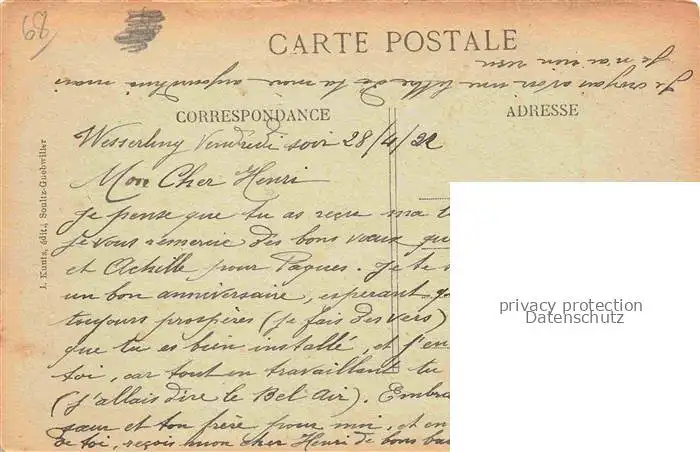 68
CARTE POSTALE
Je croyais avoir une lettre de ta main aujourd'hui mais
je n'ai rien reçu
CORRESPONDANCE
ADRESSE
J. Kuntz, édit., Soultz-Guebwiller
Wesserling Vendredi soir 28/4/22
Mon Cher Henri
Je pense que tu as reçu ma
je vous remercie des bons vœux que
et Achille pour Pâques. Je te
un bon anniversaire, espérant
toujours prospères (je fais des vers)
que tu es bien installé, et j'en
toi, car tout en travaillant tu
(j'allais dire le Bel Air). Embra
sœur et ton frère pour moi, et en
de toi, reçois mon cher Henri de bons bai
privacy protection
Datenschutz